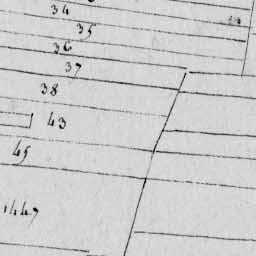 34
35
36
37
38
43
45
1447